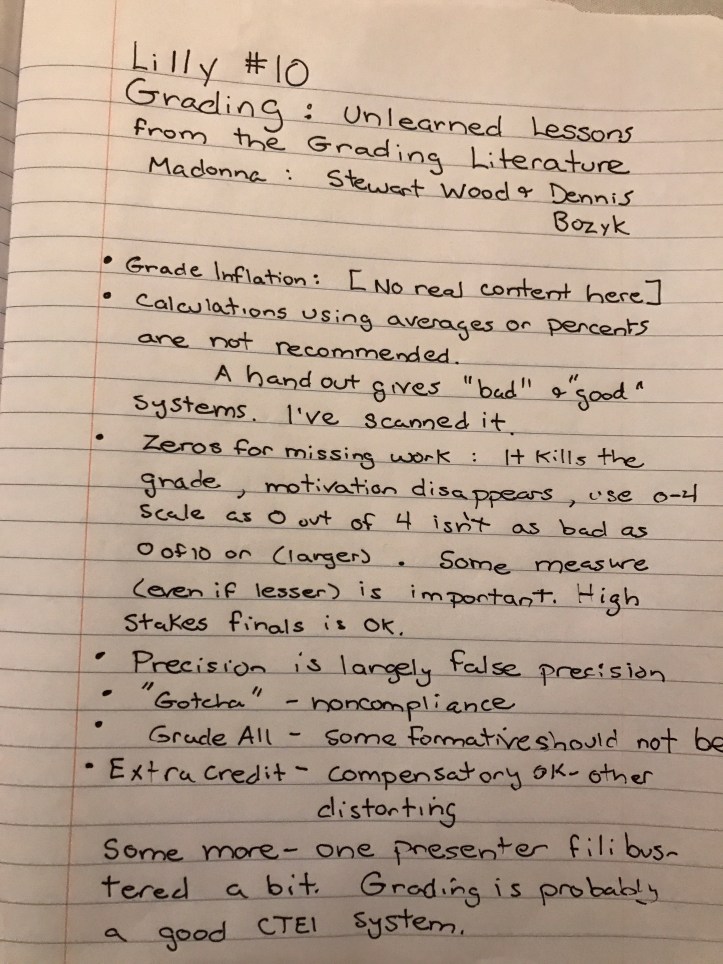 Lilly #10
Grading : Unlearned Lessons
from the Grading Literature
Madonna : Stewart Wood & Dennis
Bozyk
• Grade Inflation : [No real content here]
• Calculations using averages or percents
are not recommended.
A handout gives "bad" & "good"
systems. I've scanned it.
• Zeros for missing work : It kills the
grade, motivation disappears, use 0-4
scale as 0 out of 4 isn't as bad as
0 of 10 or (larger). Some measure
(even if lesser) is important. High
stakes finals is OK.
• Precision is largely false precision
• "Gotcha" - noncompliance
• Grade All - some formative should not be
• Extra credit - compensatory OK - other
distorting
Some more - one presenter filibus-
tered a bit. Grading is probably
a good CTEI system.